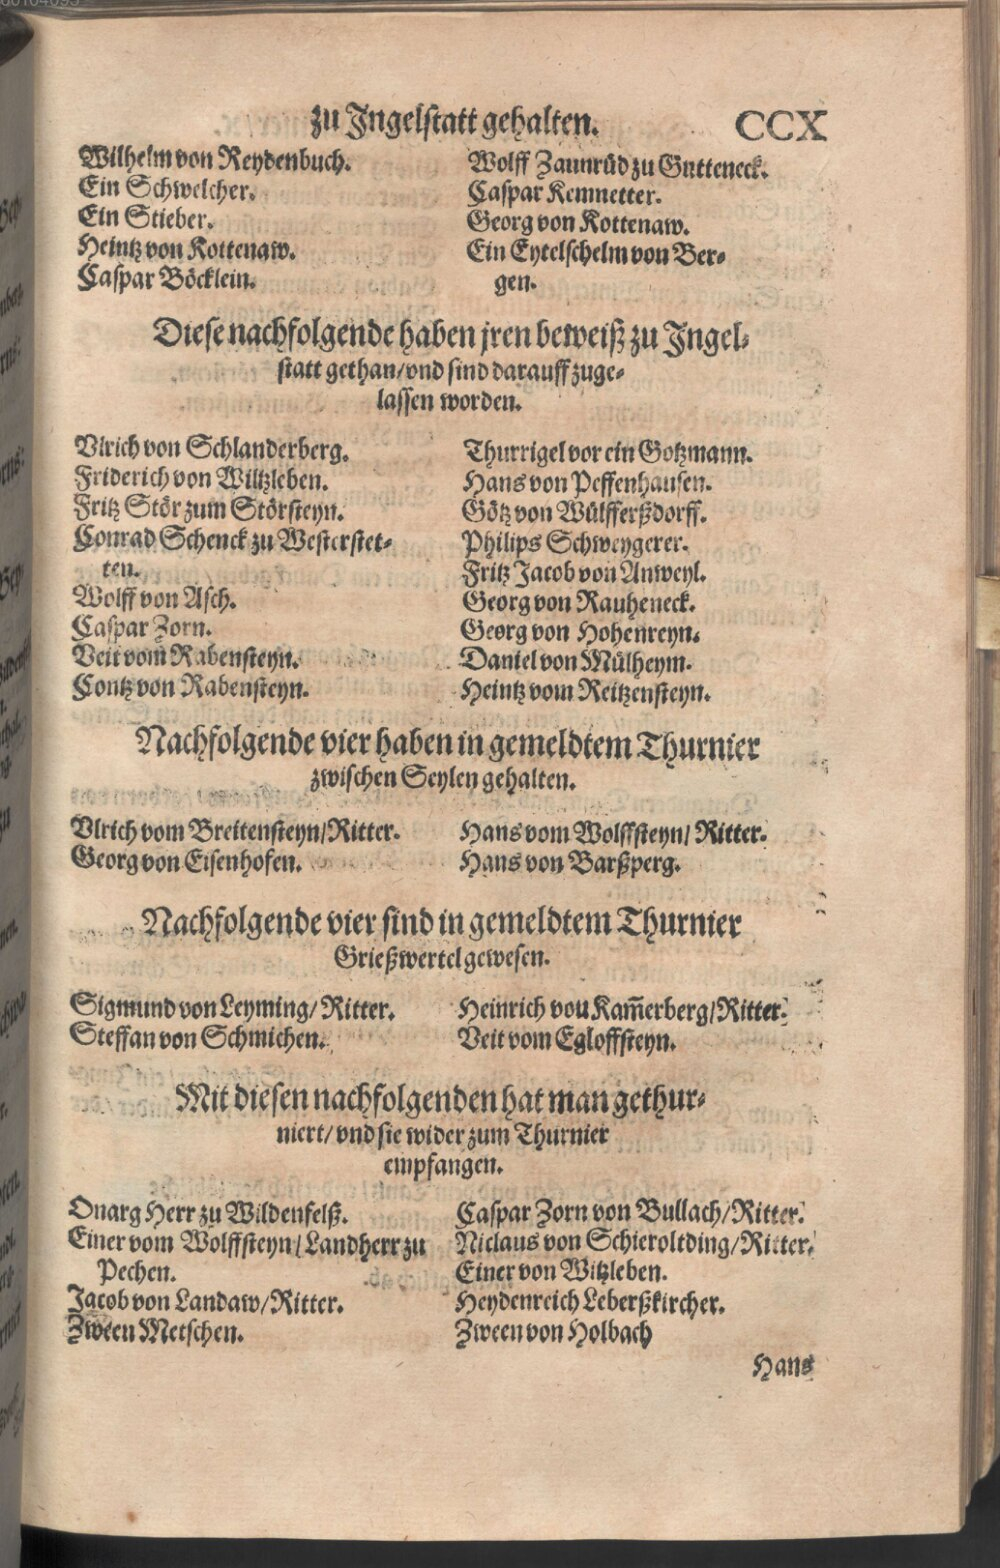 zu Jngelstatt gehalten. CCX
Wilhelm von Reydenbuch.
Ein Schwelcher.
Ein Stieber.
Heintz von Kottenaw.
Caspar Böcklein.
Wolff Zaunrüd zu Gutteneck.
Caspar Kemnetter.
Georg von Kottenaw.
Ein Eytelschelm von Ber-
gen.
Diese nachfolgende haben jren beweiß zu Jngel-
statt gethan/ vnd sind darauff zuge-
lassen worden.
Vlrich von Schlanderberg.
Friderich von Wiltzleben.
Fritz Stör zum Störsteyn.
Conrad Schenck zu Westerstet-
ten.
Wolff von Asch.
Caspar Zorn.
Veit vom Rabensteyn.
Contz von Rabensteyn.
Thurrigel vor ein Gotzmann.
Hans von Peffenhausen.
Götz von Wülfferßdorff.
Philips Schweygerer.
Fritz Jacob von Anweyl.
Georg von Rauheneck.
Georg von Hohenreyn.
Daniel von Mülheym.
Heintz vom Reitzensteyn.
Nachfolgende vier haben in gemeldtem Thurnier
zwischen Seylen gehalten.
Vlrich vom Breitensteyn/ Ritter.
Georg von Eisenhofen.
Hans vom Wolffsteyn/ Ritter.
Hans von Barßperg.
Nachfolgende vier sind in gemeldtem Thurnier
Grießwertel gewesen.
Sigmund von Leyming/ Ritter.
Steffan von Schmichen.
Heinrich vou Kam̄erberg/ Ritter.
Veit vom Egloffsteyn.
Mit diesen nachfolgenden hat man gethur-
niert/ vnd sie wider zum Thurnier
empfangen.
Onarg Herr zu Wildenfelß.
Einer vom Wolffsteyn/ Landherr zu
Pechen.
Jacob von Landaw/ Ritter.
Zween Metschen.
Caspar Zorn von Bullach/ Ritter.
Niclaus von Schieroltding/ Ritter.
Einer von Witzleben.
Heydenreich Leberßkircher.
Zween von Holbach
Hans